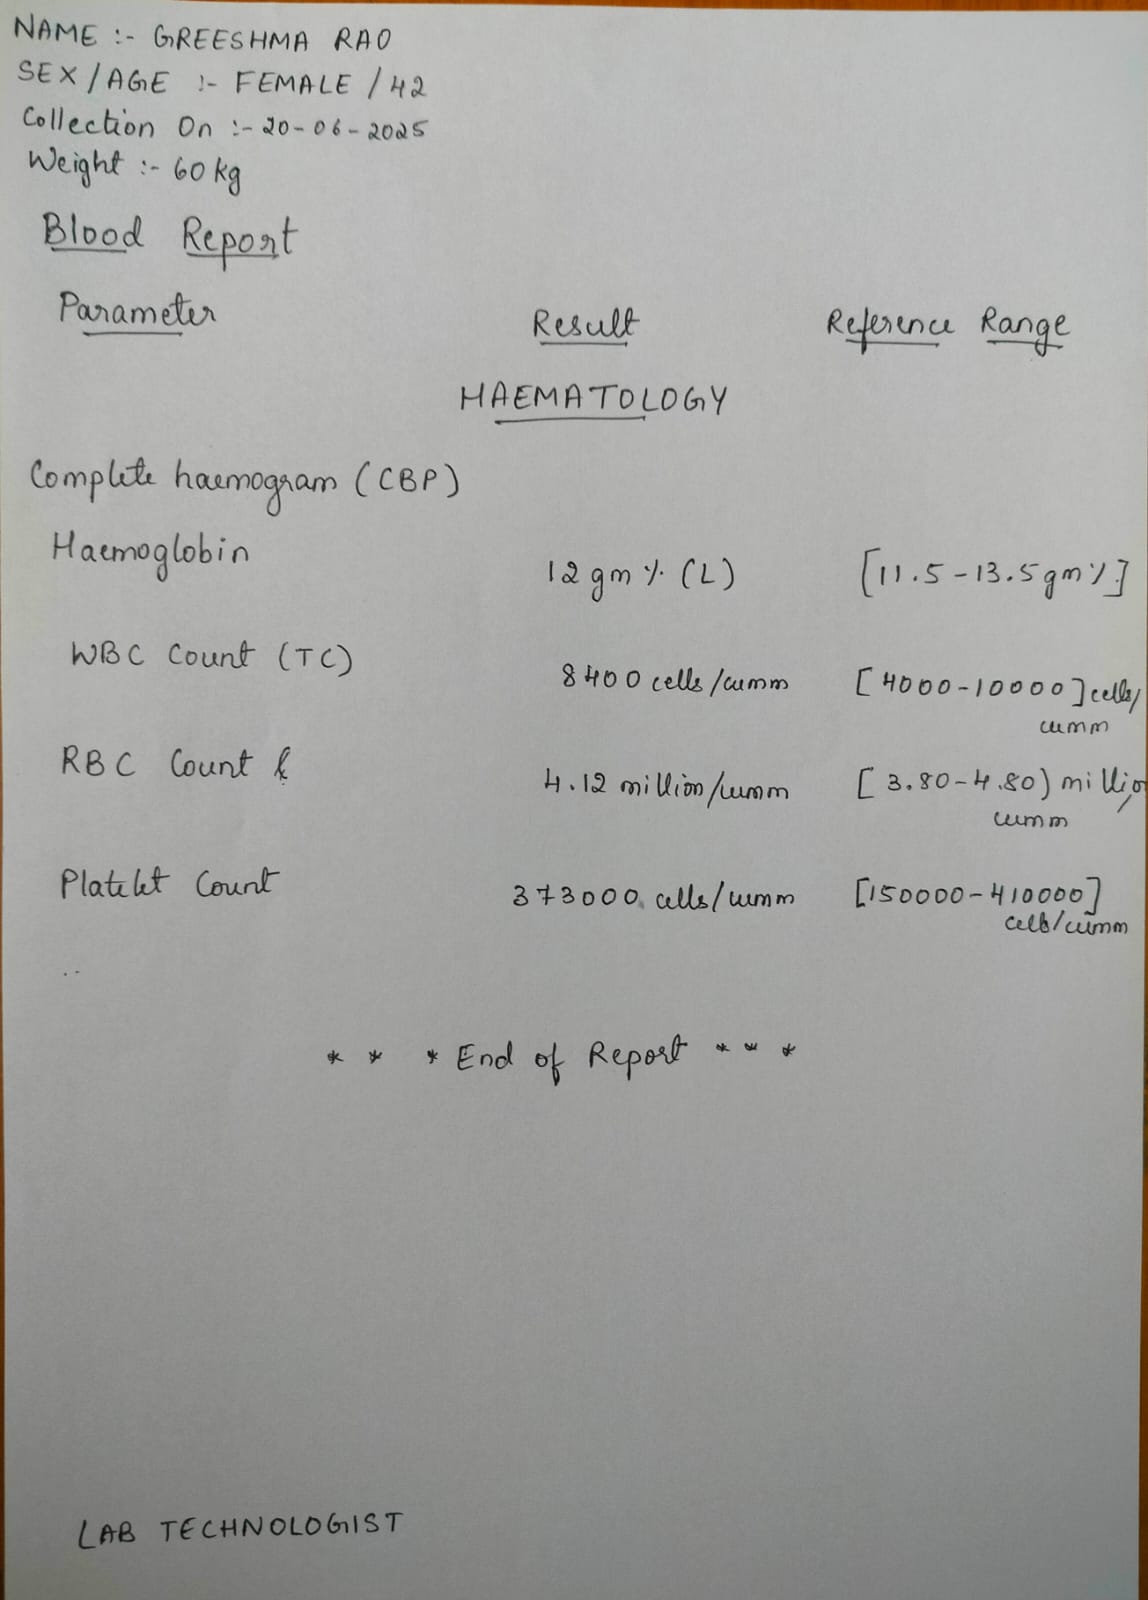 NAME :- GREESHMA RAO
SEX/AGE :- FEMALE / 42
Collection On :- 20-06-2025
Weight :- 60 kg
Blood Report
Parameter Result Reference Range
HAEMATOLOGY
Complete haemogram (CBP)
Haemoglobin 12 gm % (L) [11.5-13.5 gm %]
WBC Count (TC) 8400 cells/cumm [4000-10000] cells/
cumm
RBC Count 4.12 million/cumm [3.80-4.80) millio
/cumm
Platelet Count 373000 cells/cumm [150000-410000]
cells/cumm
* * * End of Report * * *
LAB TECHNOLOGIST